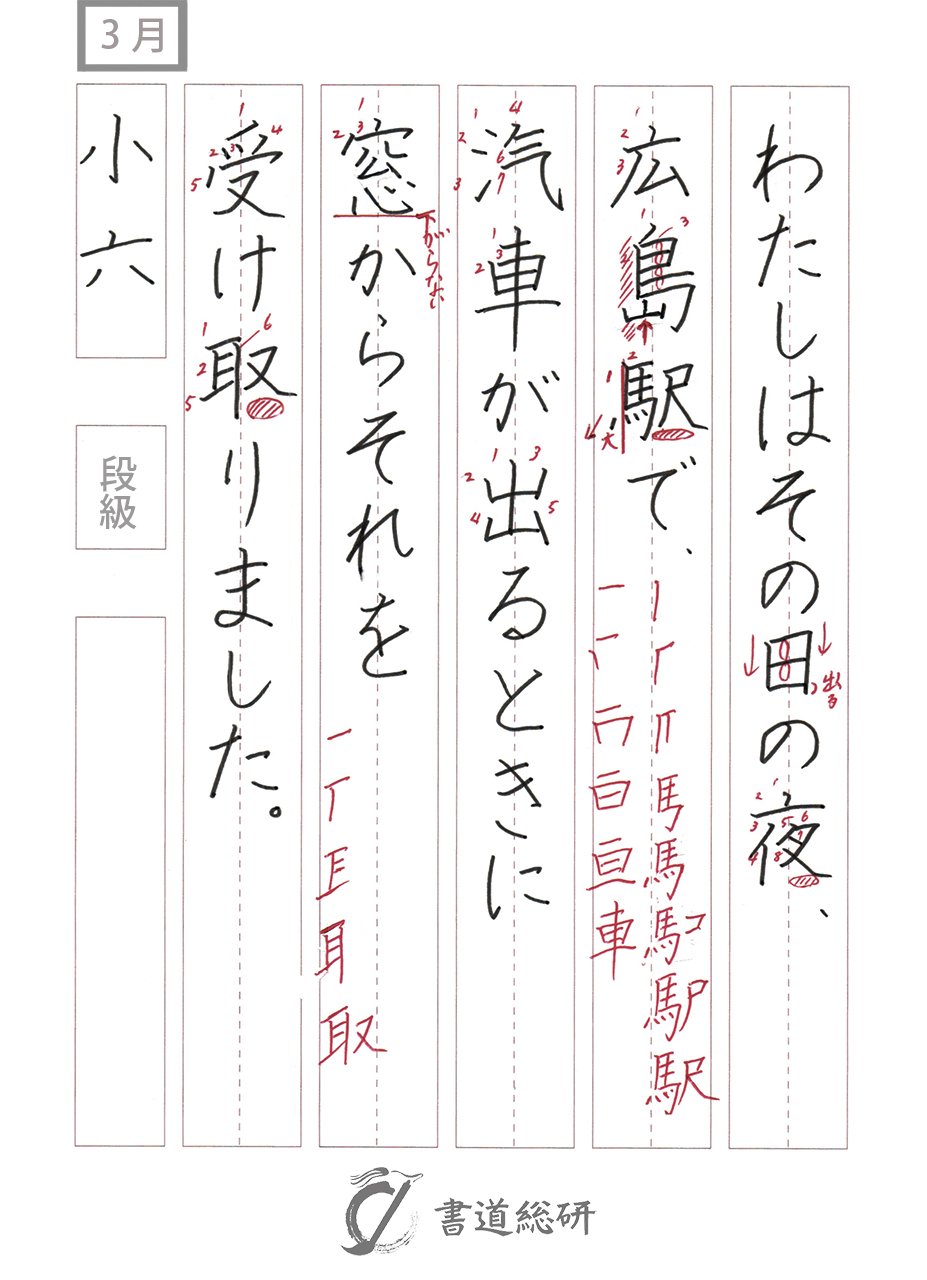 3月
わたしはその田の夜、
出る
広島駅で、
大
馬馬駅駅
車
汽車が出るときに
窓からそれを
下がらない
耳取
受け取りました。
小六
段級
書道総研